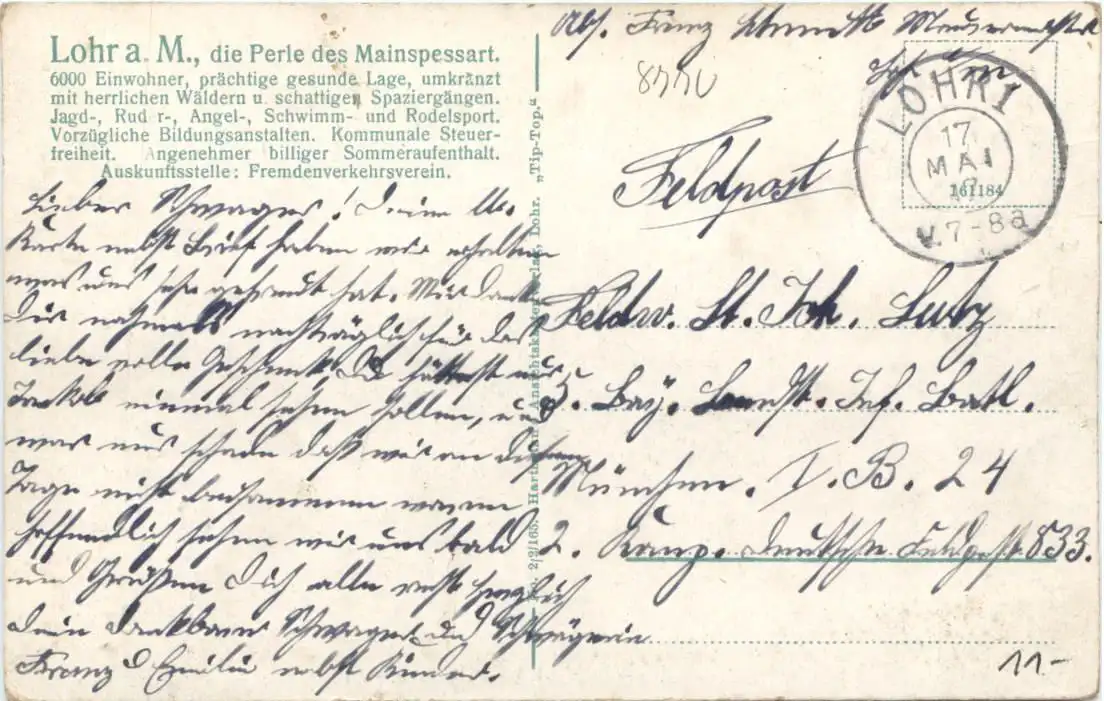 Lohr a. M., die Perle des Mainspessart.
6000 Einwohner, prächtige gesunde Lage, umkränzt
mit herrlichen Wäldern u. schattigen Spaziergängen.
Jagd-, Rud r-, Angel-, Schwimm- und Rodelsport.
Vorzügliche Bildungsanstalten. Kommunale Steuer-
freiheit. Angenehmer billiger Sommeraufenthalt.
Auskunftsstelle: Fremdenverkehrsverein.
Lieber Schwager! Deine
Karte nebst Brief haben wir erhalten
was uns sehr gefreut hat. Wir danken
Dir nochmals nachträglich für das
liebe volle Geschenk, Du hättest
einmal sehen sollen, und
war uns schade daß wir an diesem
Tage nicht beisammen waren
hoffendlich sehen wir uns bald
und Grüßen Dich alle recht herzlich
Dein dankbarer Schwager und Schwägerin
Franz & Emilie nebst Kinder.
No. 22/165. Ansichtskartenverlag, Lohr. „Tip-Top."
Abs. Franz
8770
Feldpost
LOHR 1
17
MAI
17
V. 7-8a
161184
Feldw. Lt. Joh. Lutz
5. Bay. Landst. Inf. Batl.
München. I. B. 24
2. Komp. Deutsche Feldpost 833.
11-